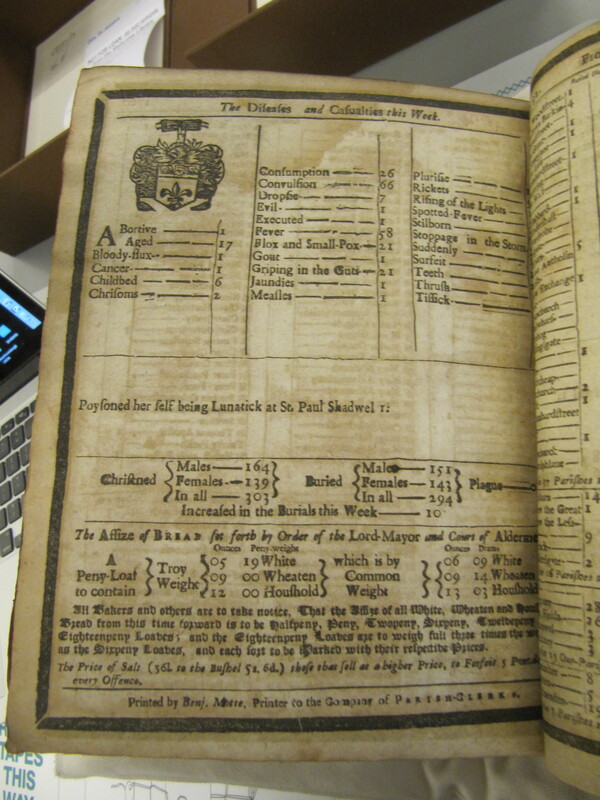 The Diseases and Casualties this Week.
A Bortive 1
Aged 17
Bloody-flux 1
Cancer 1
Childbed 6
Chrisoms 2
Consumption 26
Convulsion 66
Dropsie 7
Evil 1
Executed 1
Fever 58
Flox and Small-Pox 21
Gout 1
Griping in the Guts 21
Jaundies 1
Measles 1
Plurisie
Rickets
Rising of the Lights
Spotted-Fever
Stilborn
Stoppage in the Stom
Suddenly
Surfeit
Teeth
Thrush
Tissick
Poysoned her self being Lunatick at St. Paul Shadwel 1:
Christned { Males 164 Females 139 In all 303 } Buried { Males 151 Females 143 In all 294 } Plague 0
Increased in the Burials this Week 10
The Assize of BREAD set forth by Order of the Lord-Mayor and Court of Alderme
Ounces Peny-weights Ounces Drams
A Peny-Loaf to contain } Troy Weight { 05 19 White
09 00 Wheaten
12 00 Houshold } which is by Common Weight { 06 09 White
09 14 Wheaten
13 03 Houshold
All Bakers and others are to take notice, That the Assize of all White, Wheaten and Hous
Bread from this time forward is to be Halfpeny, Peny, Twopeny, Sixpeny, Twelvepeny
Eighteenpeny Loaves; and the Eighteenpeny Loaves are to weigh full three times the we
as the Sixpeny Loaves, and each sort to be Marked with their respective Prices.
The Price of Salt (56l. to the Bushel 5s. 6d.) those that sell at a higher Price, to Forfeit 5 Poun
every Offence.
Printed by Benj. Motte, Printer to the Company of PARISH-CLERKS.
TAPES
THIS
WAY